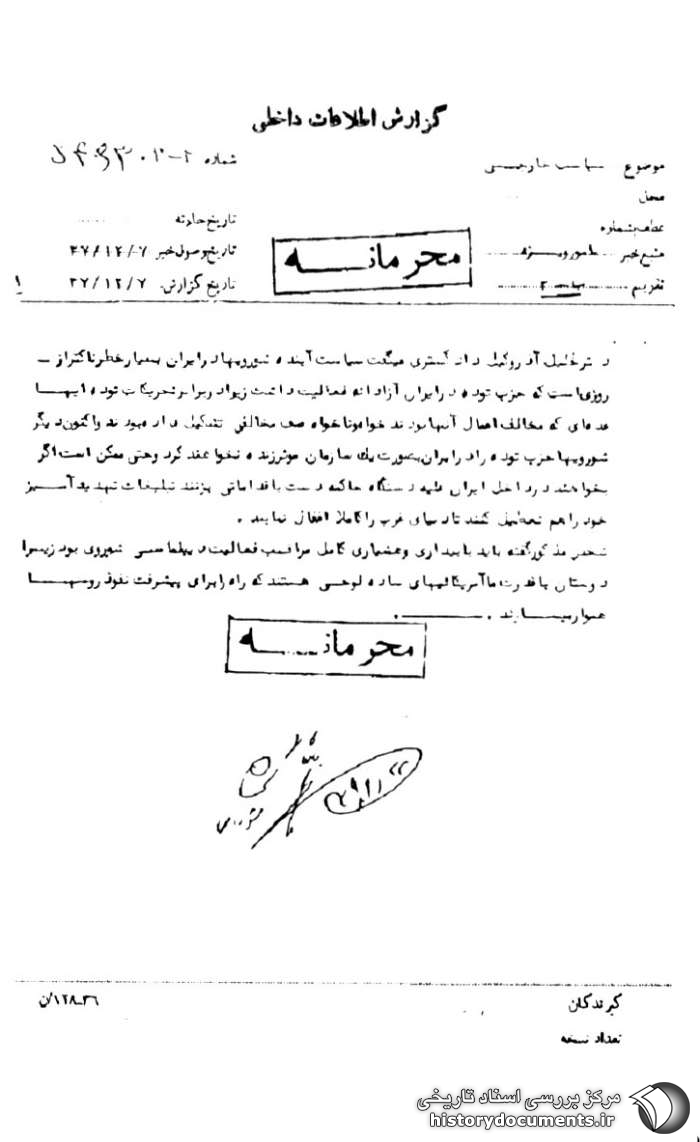 گزارش اطلاعات داخلی
موضوع سیاست خارجی
شماره
محل
تاریخ حادثه
عطف بشماره
تاریخ وصول خبر ۳۷/۱۲/۷
منبع خبر مامور ویژه
تاریخ گزارش ۳۷/۱۲/۷
تقویم
محرمانه
دکتر خلیل آذر وکیل دادگستری میگفت سیاست آینده شورویها در ایران بسیار خطرناکتر از
روزی است که حزب توده در ایران آزادانه فعالیت داشت زیرا در برابر تحریکات توده ایها
عده‌ای که مخالف اعمال آنها بودند خواه و ناخواه صف مخالفی تشکیل داده بودند و اکنون دیگر
شورویها حزب توده را در ایران بصورت یک سازمان موثر زنده نخواهند کرد و حتی ممکن است اگر
بخواهند در داخل ایران علیه دستگاه حاکمه دست باقداماتی بزنند تبلیغات تهدید آمیز
خود را هم تعطیل کنند تا دنیای غرب را کاملا اغفال نمایند .
شخص مذکور گفته باید با بیداری و هشیاری کامل مراقب فعالیت دیپلماسی شوروی بود زیرا
دوستان با قدرت ما آمریکائیهای ساده لوحی هستند که راه را برای پیشرفت نفوذ روسها
هموار میسازند .
محرمانه
گیرندگان
۱۲۸-۳۶/ن
تعداد نسخه
مرکز بررسی اسناد تاریخی
historydocuments.ir